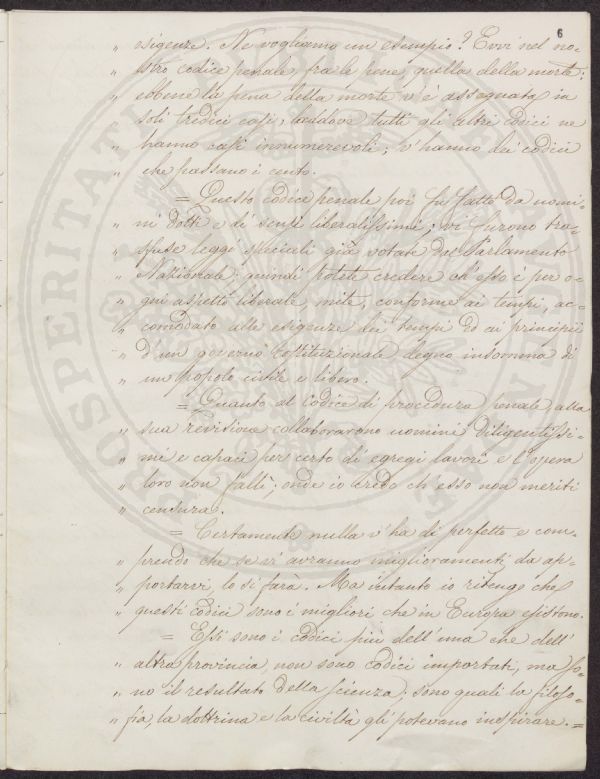 6
" esigenze. Ne vogliamo un esempio? Evvi nel no-
" stro codice penale, fra le pene, quella della morte;
" ebbene la pena della morte v'è assegnata in
" soli tredici casi, laddove tutti gli altri codici ne
" hanno casi innumerevoli; v'hanno dei codici
" che passano i cento.
" = Questo codice penale poi fu fatto da uomi-
" ni dotti e di sensi liberalissimi; vi furono tra-
" sfuse leggi speciali già votate dal Parlamento
" Nazionale; quindi potete credere ch'esso è per o-
" gni aspetto liberale, mite, conforme ai tempi, ac-
" comodato alle esigenze dei tempi ed ai principii
" d'un governo costituzionale degno insomma di
" un popolo civile e libero.
" = Quanto al codice di procedura penale, alla
" sua revisione collaborarono uomini diligentissi-
" mi e capaci per certo di egregi lavori e l'opera
" loro non fallì; onde io credo ch'esso non meriti
" censura.
" = Certamente nulla v'ha di perfetto e com-
" prendo che se vi avranno miglioramenti da ap-
" portarvi, lo si farà. Ma intanto io ritengo che
" questi codici sono i migliori che in Europa esistono.
" = Essi sono i codici più dell'una che dell'
" altra provincia, non sono codici importati, ma so-
" no il resultato della scienza; sono quali la filoso-
" fia, la dottrina e la civiltà gli potevano inspirare. =
PROSPERITATI